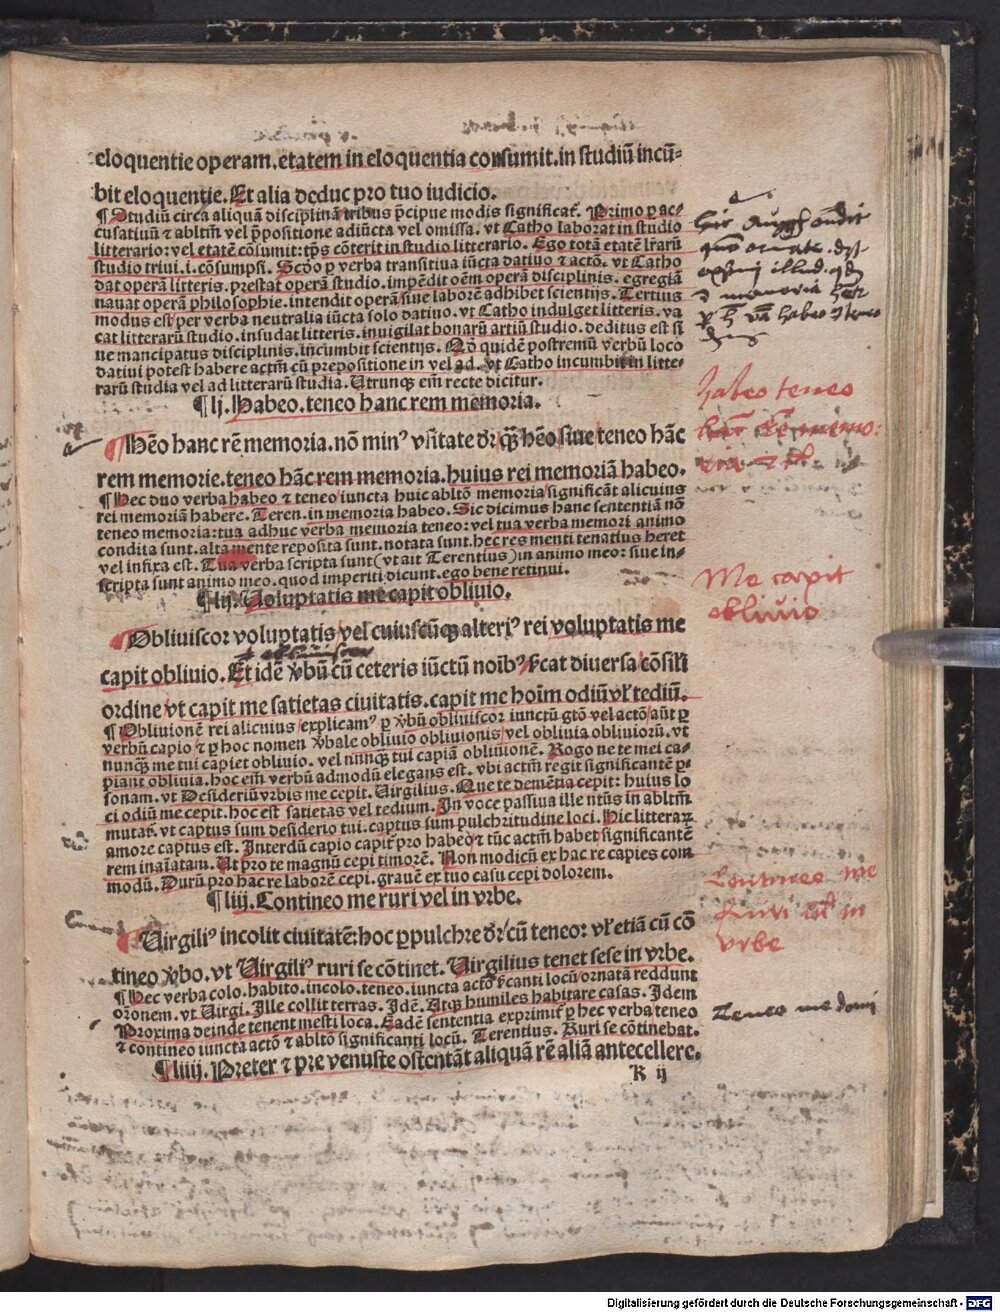 eloquentie operam. etatem in eloquentia consumit. in studiū incū-
bit eloquentie. Et alia deduc pro tuo iudicio.
¶ Studiū circa aliquā disciplinā tribus p̄cipue modis significat᷒. Primo ꝑ ac-
cusatiuū ⁊ abltm̄ vel p̄positione adiūcta vel omissa. vt Catho laborat in studio
litterario: vel etatē cōsumit: tp̄s cōterit in studio litterario. Ego totā etatē lr̄arū
studio triui. i. cōsumpsi. Scd̄o ꝑ verba transitiua iūcta datiuo ⁊ actō. vt Catho
dat operā litteris. prestat operā studio. impēdit oēm operā disciplinis. egregiā
nauat operā philosophie. intendit operā siue laborē adhibet scientijs. Tertius
modus est per verba neutralia iūcta solo datiuo. vt Catho indulget litteris. va
cat litterarū studio. insudat litteris. inuigilat bonarū artiū studio. deditus est si
ue mancipatus disciplinis. incumbit scientijs. Nō quidē postremū verbū loco
datiui potest habere actm̄ cū prepositione in vel ad. vt Catho incumbit in litte-
rarū studia vel ad litterarū studia. Utrunqꝫ em̄ recte dicitur.
¶ lj. Habeo. teneo hanc rem memoria.
¶ Hēo hanc rē memoria. nō minꝰ vsitate dr̄ qꝫ̄ hēo siue teneo hāc
rem memorie. teneo hāc rem memoria. huius rei memoriā habeo.
¶ Hec duo verba habeo ⁊ teneo iuncta huic abltō memoria significāt alicuius
rei memoriā habere. Teren. in memoria habeo. Sic dicimus hanc sententiā nō
teneo memoria: tua adhuc verba memoria teneo: vel tua verba memori animo
condita sunt. alta mente reposita sunt. notata sunt. hec res menti tenatius heret
vel infixa est. Tua verba scripta sunt (vt ait Terentius) in animo meo: siue in-
scripta sunt animo meo. quod imperiti dicunt. ego bene retinui.
¶ lij. Voluptatis me capit obliuio.
Obliuiscor voluptatis vel cuiuscūqꝫ alteriꝰ rei voluptatis me
capit obliuio. Et idē v̄bū cū ceteris iūctū noībꝰ fc̄at diuersa cōsili
ordine vt capit me satietas ciuitatis. capit me hoīm odiū vl̄ tediū.
¶ Obliuionē rei alicuius explicamꝰ ꝑ v̄bū obliuiscor iunctū gtō vel actō/ aūt ꝑ
verbū capio ⁊ ꝑ hoc nomen v̄bale obliuio obliuionis/ vel obliuia obliuiorū. vt
nunqꝫ me tui capiet obliuio. vel nunqꝫ tui capiā obliuionē. Rogo ne te mei ca-
piant obliuia. hoc em̄ verbū admodū elegans est. vbi actm̄ regit significantē ꝑ-
sonam. vt Desideriū vrbis me cepit. Uirgilius. Que te demētia cepit: huius lo
ci odiū me cepit. hoc est satietas vel tedium. In voce passiua ille ntūs in abltm̄
mutat᷒. vt captus sum desiderio tui. captus sum pulchritudine loci. Hic litteraꝝ
amore captus est. Interdū capio capit᷒ pro habeo ⁊ tūc actm̄ habet significantē
rem inaīatam. Ut pro te magnū cepi timorē. Non modicū ex hac re capies com
modū. Durū pro hac re laborē cepi. grauē ex tuo casu cepi dolorem.
¶ liij. Contineo me ruri vel in vrbe.
¶ Uirgiliꝰ incolit ciuitatē: hoc ꝑpulchre dr̄ cū teneo: vl̄ etiā cū cō
tineo v̄bo. vt Uirgiliꝰ ruri se cōtinet. Virgilius tenet sese in vrbe.
¶ Hec verba colo. habito. incolo. teneo. iuncta actō fc̄anti locū ornatā reddunt
orōnem. vt Uirgi. Ille collit terras. Idē. Atqꝫ humiles habitare casas. Idem
Proxima deinde tenent mesti loca. Eadē sententia exprimit᷒ ꝑ hec verba teneo
⁊ contineo iuncta actō ⁊ abltō significanti locū. Terentius. Ruri se cōtinebat.
¶ liiij. Preter ⁊ pre venuste ostentāt aliquā rē aliā antecellere.
K ij
habeo teneo
Me capit
oblivio
Contineo me
Ruri vel in
vrbe
Teneo me domi
Digitalisierung gefördert durch die Deutsche Forschungsgemeinschaft - DFG